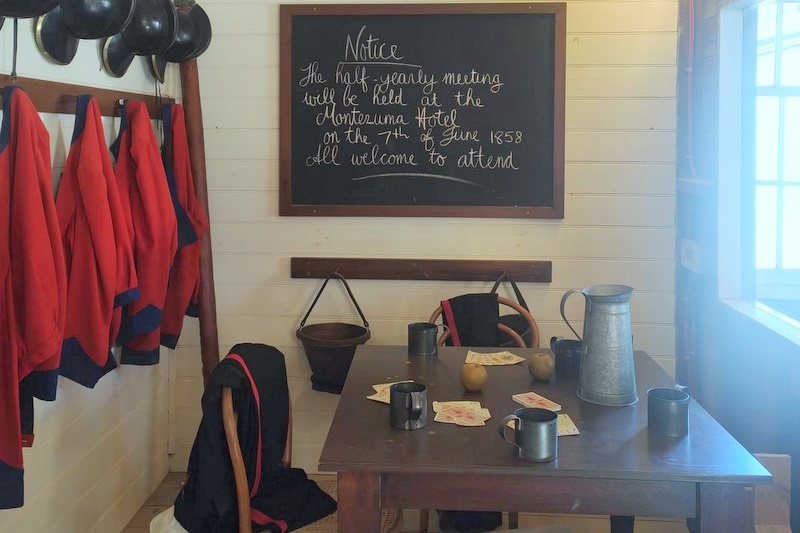 Notice
The half-yearly meeting
will be held at the
Montezuma Hotel
on the 7th of June 1858
All welcome to attend